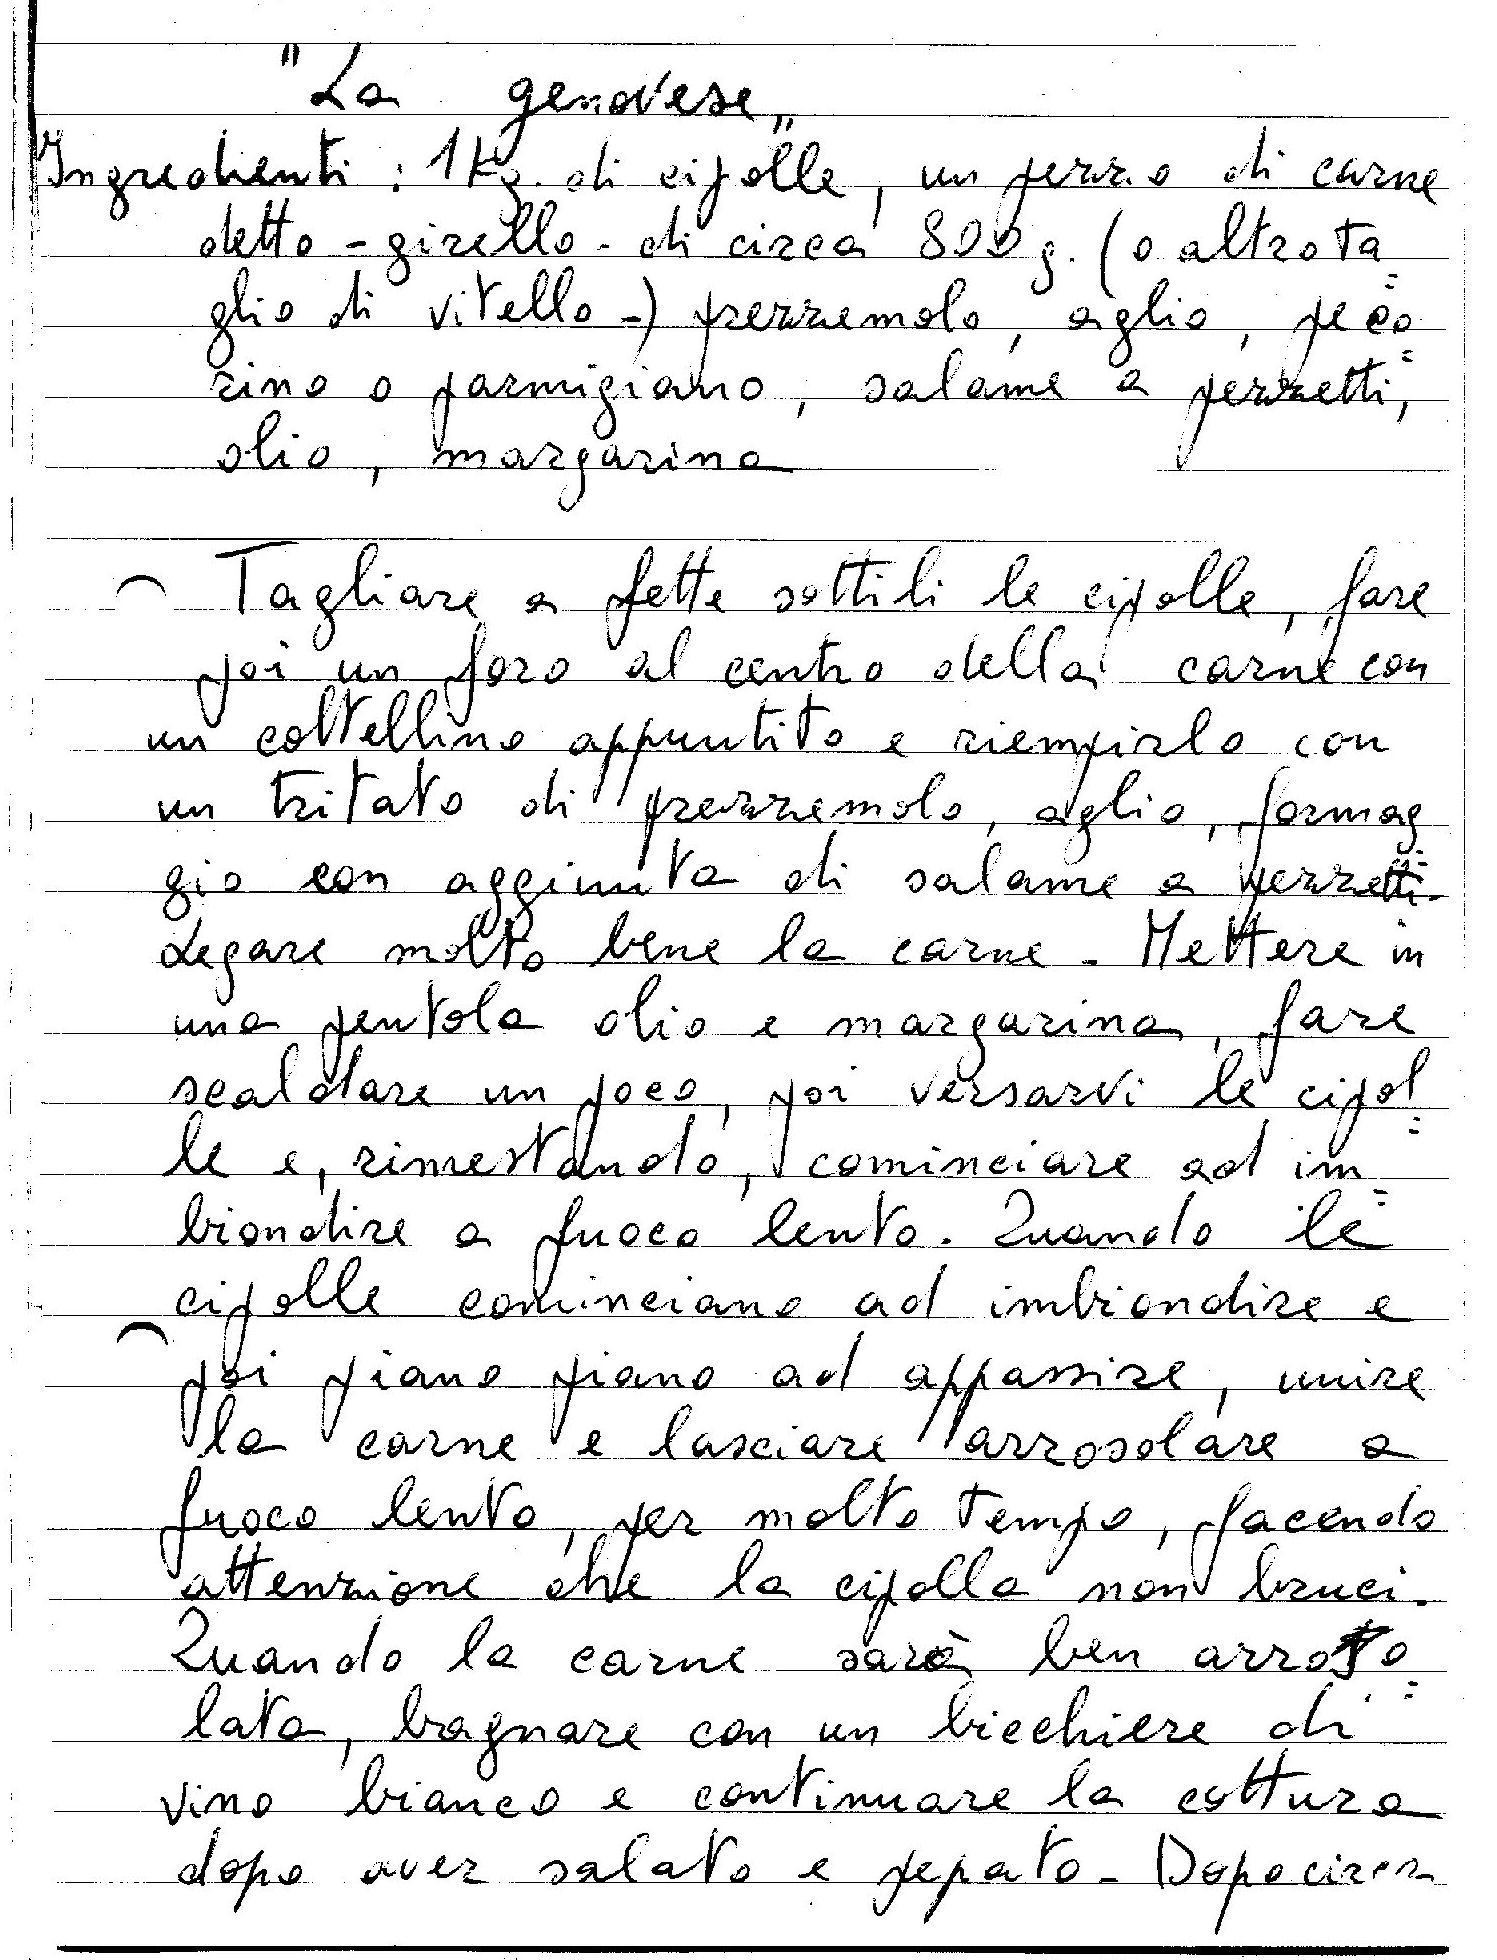 "La genovese"
Ingredienti : 1 Kg. di cipolle, un pezzo di carne
detto - girello - di circa 800 g. (o altro ta=
glio di vitello -) prezzemolo, aglio, peco=
rino o parmigiano, salame a pezzetti,
olio, margarina
Tagliare a fette sottili le cipolle, fare
poi un foro al centro della carne con
un coltellino appuntito e riempirlo con
un tritato di prezzemolo, aglio, formag=
gio con aggiunta di salame a pezzetti.
Legare molto bene la carne - Mettere in
una pentola olio e margarina, fare
scaldare un poco, poi versarvi le cipol=
le e, rimestando, cominciare ad im=
biondire a fuoco lento. Quando le
cipolle cominciano ad imbiondire e
poi piano piano ad appassire, unire
la carne e lasciare arrosolare a
fuoco lento, per molto tempo, facendo
attenzione che la cipolla non bruci.
Quando la carne sarà ben arroso=
lata, bagnare con un bicchiere di
vino bianco e continuare la cottura
dopo aver salato e pepato - Dopo circa